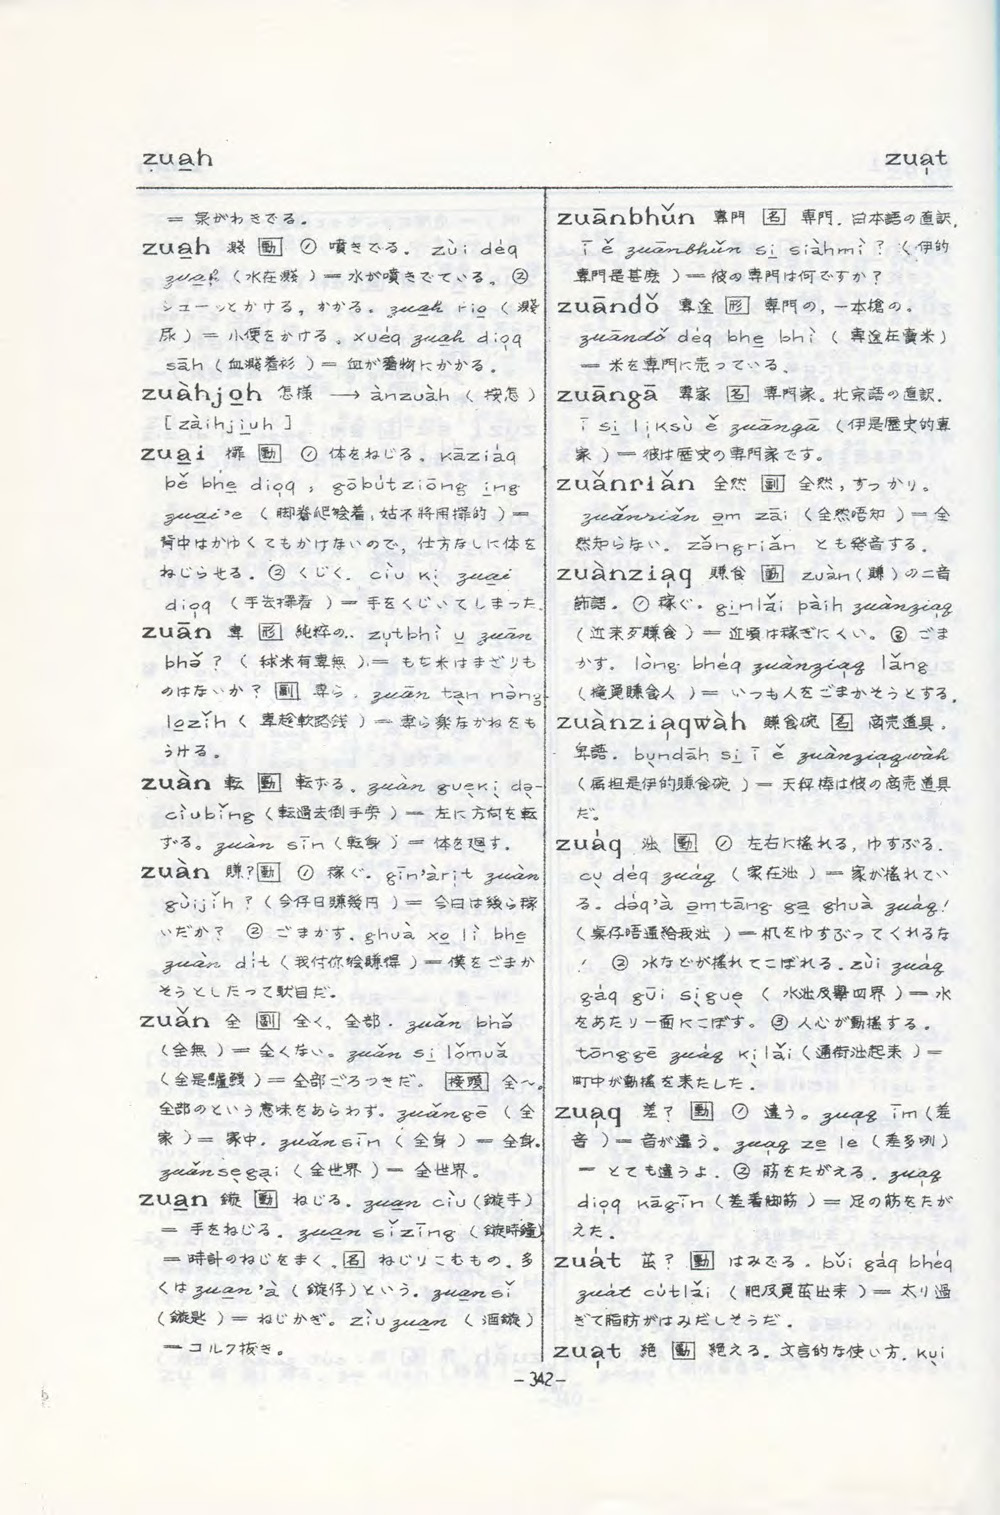 zua̱h
zua̤t
＝ 泉がわきでる。
zua̱h 濺 動 ① 噴きでる. zùi déq
zua̱h (水在濺) ＝ 水が噴きでている。 ②
シューッとかける, かかる。 zua̱h rio̱ (濺
尿) ＝ 小便をかける。 xuéq zua̱h dioq
sāh (血濺着衫) ＝ 血が着物にかかる。
zuàhjo̱h 怎様 → ànzuàh (按怎)
[zàihjiuh]
zua̱i 動 ① 体をねじる. kāziáq
bě bhe̱ dioq, gōbútziōng i̱ng
zua̱i'e ＝
背中はかゆくてもかけないので, 仕方なしに体を
ねじらせる. ② くじく. ciu ki zua̱i
dioq ＝ 手をくじいてしまった.
zuān 専 形 純粋の.. zutbhì u̱ zuān
bhǒ ? (秫米有専無) ＝ もち米はまざりも
のはないか? 副 専ら. zuān ta̱n nàng-
lo̱zǐh (専趁軟路銭) ＝ 専ら楽なかねをも
うける。
zuàn 転 動 転ずる. zuàn gue̱ki də-
ciubǐng (転過去倒手旁) ＝ 左に方向を転
ずる。 zuàn sīn (転身) ＝ 体を廻す.
zuàn 賺? 動 ① 稼ぐ. gīn'àrit zuàn
gùijǐh ? (今仔日賺幾円) ＝ 今日は幾ら稼
いだか? ② ごまかす. ghuà xo̱ lì bhe̱
zuàn dit (我付你𣍐賺得) ＝ 僕をごまか
そうとしたって駄目だ.
zuǎn 全 副 全く, 全部. zuǎn bhǒ
(全無) ＝ 全くない。 zuǎn si̱ lǒmuǎ
(全是鱸鰻) ＝ 全部ごろつきだ。 接頭 全～。
全部のという意味をあらわす. zuǎngē (全
家) ＝ 家中. zuǎnsīn (全身) ＝ 全身.
zuǎnse̱ga̱i (全世界) ＝ 全世界。
zua̱n 鏇 動 ねじる. zua̱n ciù (鏇手)
＝ 手をねじる. zua̱n sǐzīng (鏇時鐘)
＝ 時計のねじをまく. 名 ねじりこむもの. 多
くは zua̱n'à (鏇仔) という. zua̱nsǐ
(鏇匙) ＝ ねじかぎ。 zìuzua̱n (酒鏇)
＝ コルク抜き。
zuānbhǔn 専門 名 専門. 日本語の直訳.
ī ě zuānbhǔn si̱ siàhmì ? (伊的
専門是甚麽) ＝ 彼の専門は何ですか?
zuāndǒ 専途 形 専門の, 一本槍の.
zuāndǒ déq bhe̱ bhì (専途在賣米)
＝ 米を専門に売っている.
zuāngā 専家 名 専門家. 北京語の直訳.
ī si̱ liksù ě zuāngā (伊是歴史的専
家) ＝ 彼は歴史の専門家です。
zuǎnriǎn 全然 副 全然, すっかり。
zuǎnriǎn əm zāi (全然唔知) ＝ 全
然知らない. zǎngriǎn とも発音する.
zuànziaq 賺食 動 zuàn(賺)の二音
節語. ① 稼ぐ. gi̱nlǎi pàih zuànziaq
(近来歹賺食) ＝ 近頃は稼ぎにくい。 ② ごま
かす. lòng bhéq zuànziaq lǎng
(攏覓賺食人) ＝ いつも人をごまかそうとする.
zuànziaqwàh 賺食碗 名 商売道具.
卑語. bu̱ndāh si̱ ī ě zuànziaqwàh
(扁担是伊的賺食碗) ＝ 天秤棒は彼の商売道具
だ.
zuáq 泏 動 ① 左右に揺れる, ゆすぶる.
cu̱ déq zuáq (家在泏) ＝ 家が揺れてい
る. dəq'à əmtāng ga̱ ghuà zuáq!
(桌仔唔通給我泏) ＝ 机をゆすぶってくれるな
! ② 水などが揺れてこぼれる. zùi zuáq
gáq gūi sigue̱ (水泏及舉四界) ＝ 水
をあたり一面にこぼす. ③ 人心が動揺する.
tōnggē zuáq kilǎi (通街泏起来) ＝
町中が動揺を来たした.
zuaq 差? 動 ① 違う。 zuaq īm (差
音) ＝ 音が違う。 zuaq ze̱ le (差多咧)
＝ とても違うよ. ② 筋をたがえる. zuaq
dioq kāgīn (差着脚筋) ＝ 足の筋をたが
えた.
zuát 茁? 動 はみでる. bǔi gáq bhéq
zuát cútlǎi (肥及覓茁出来) ＝ 太り過
ぎて脂肪がはみだしそうだ.
zuat 絶 動 絶える. 文言的な使い方. kui
－342－